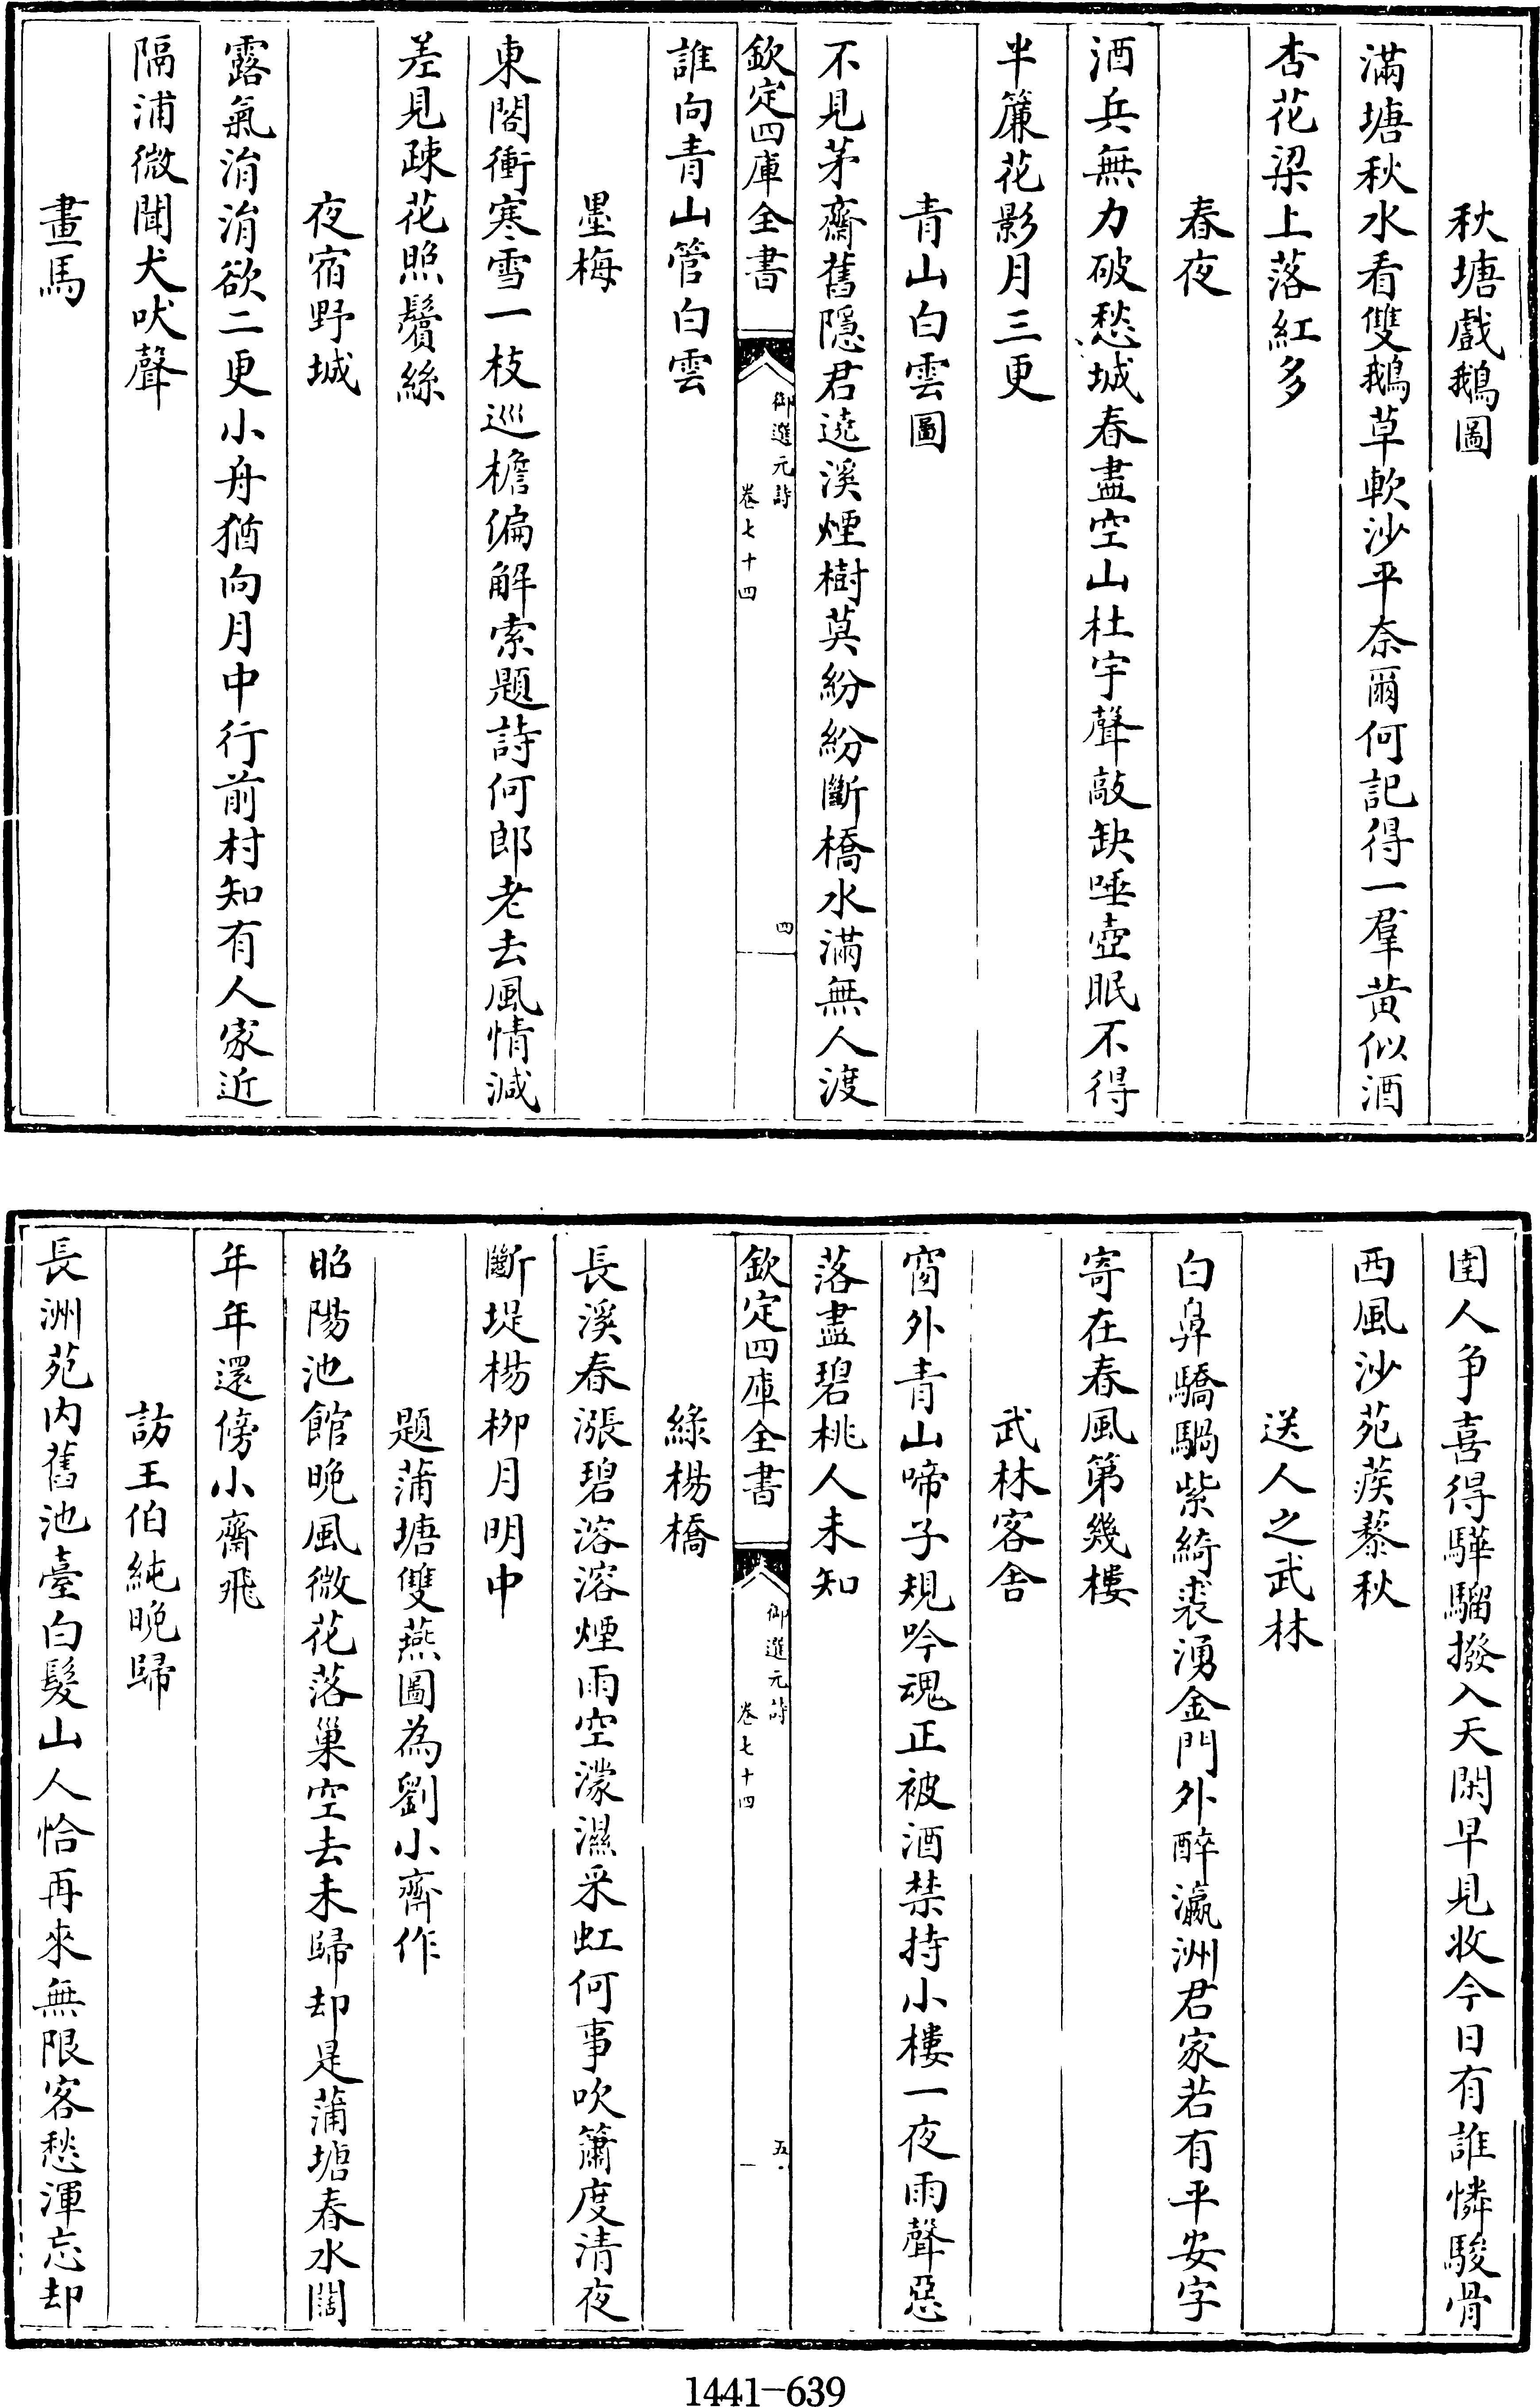 秋塘戲鵝圖
滿塘秋水看雙鵝草軟沙平奈爾何記得一羣黄似酒
杏花梁上落紅多
春夜
酒兵無力破愁城春盡空山杜宇聲敲缺唾壺眠不得
半簾花影月三更
青山白雲圖
不見茅齋舊隱君遶溪煙樹莫紛紛斷橋水滿無人渡
欽定四庫全書
御選元詩
卷七十四
四
誰向青山管白雲
墨梅
東閣衝寒雪一枝巡檐偏解索題詩何郎老去風情減
差見疎花照鬢絲
夜宿野城
露氣涓涓欲二更小舟猶向月中行前村知有人家近
隔浦微聞犬吠聲
畫馬
圉人争喜得驊騮撥入天閑早見收今日有誰憐駿骨
西風沙苑蒺藜秋
送人之武林
白鼻驕騧紫綺裘湧金門外醉瀛洲君家若有平安字
寄在春風第幾樓
武林客舍
窗外青山啼子規吟魂正被酒禁持小樓一夜雨聲惡
落盡碧桃人未知
欽定四庫全書
御選元詩
卷七十四
五
綠楊橋
長溪春漲碧溶溶煙雨空濛濕采虹何事吹簫度清夜
斷堤楊柳月明中
題蒲塘雙燕圖為劉小齋作
昭陽池館晚風微花落巢空去未歸却是蒲塘春水闊
年年還傍小齋飛
訪王伯純晚歸
長洲苑内舊池臺白髮山人恰再來無限客愁渾忘却
1441-639